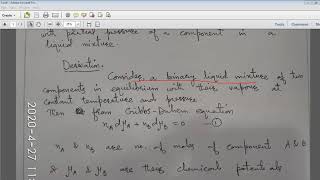 with partial pressure of a component in a
liquid mixture.
Derivation.
Consider, a binary liquid mixture of two
components in equilibrium with their vapour at
constant temperature and pressure.
Then from Gibbs-Duhem equation
nA dμA + nB dμB = 0 ①
nA & nB are no. of moles of component A & B
& μA & μB are their chemical potentials
2020-4-27